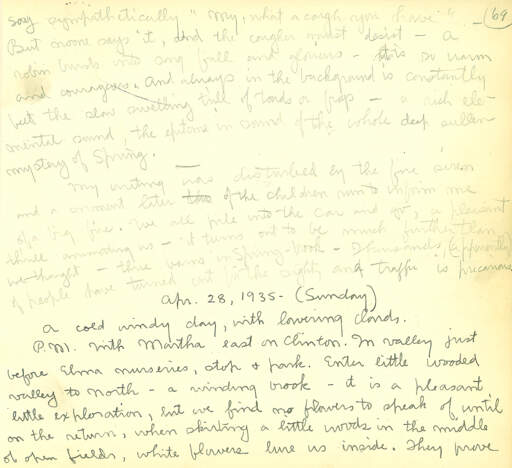 say sympathetically "my, what a cough you have". (69
But noone says it, and the cougher must desist - a
robin bursts into song full and glorious - it is so warm
and courageous. And always in the background is constantly
felt the slow swelling trill of toads or frogs - a rich ele-
mental sound, the epitome in sound of the whole deep sullen
mystery of Spring.
My writing was disturbed by the fire siren
and a moment later two of the children run to inform me
of a big fire. We all pile into the car and go, a pleasant
three animating us - it turns out to be much further than
we thought - three barns in Springbrook - Thousands, (apparently)
of people have turned out for the sight and traffic is precarious
Apr. 28, 1935 - (Sunday)
A cold windy day, with lowering clouds.
P.M. with Martha east on Clinton. In valley just
before Elma nurseries, stop & park. Enter little wooded
valley to north - a winding brook - it is a pleasant
little exploration, but we find no flowers to speak of until
on the return, when skirting a little woods in the middle
of open fields, white flowers lure us inside. They prove